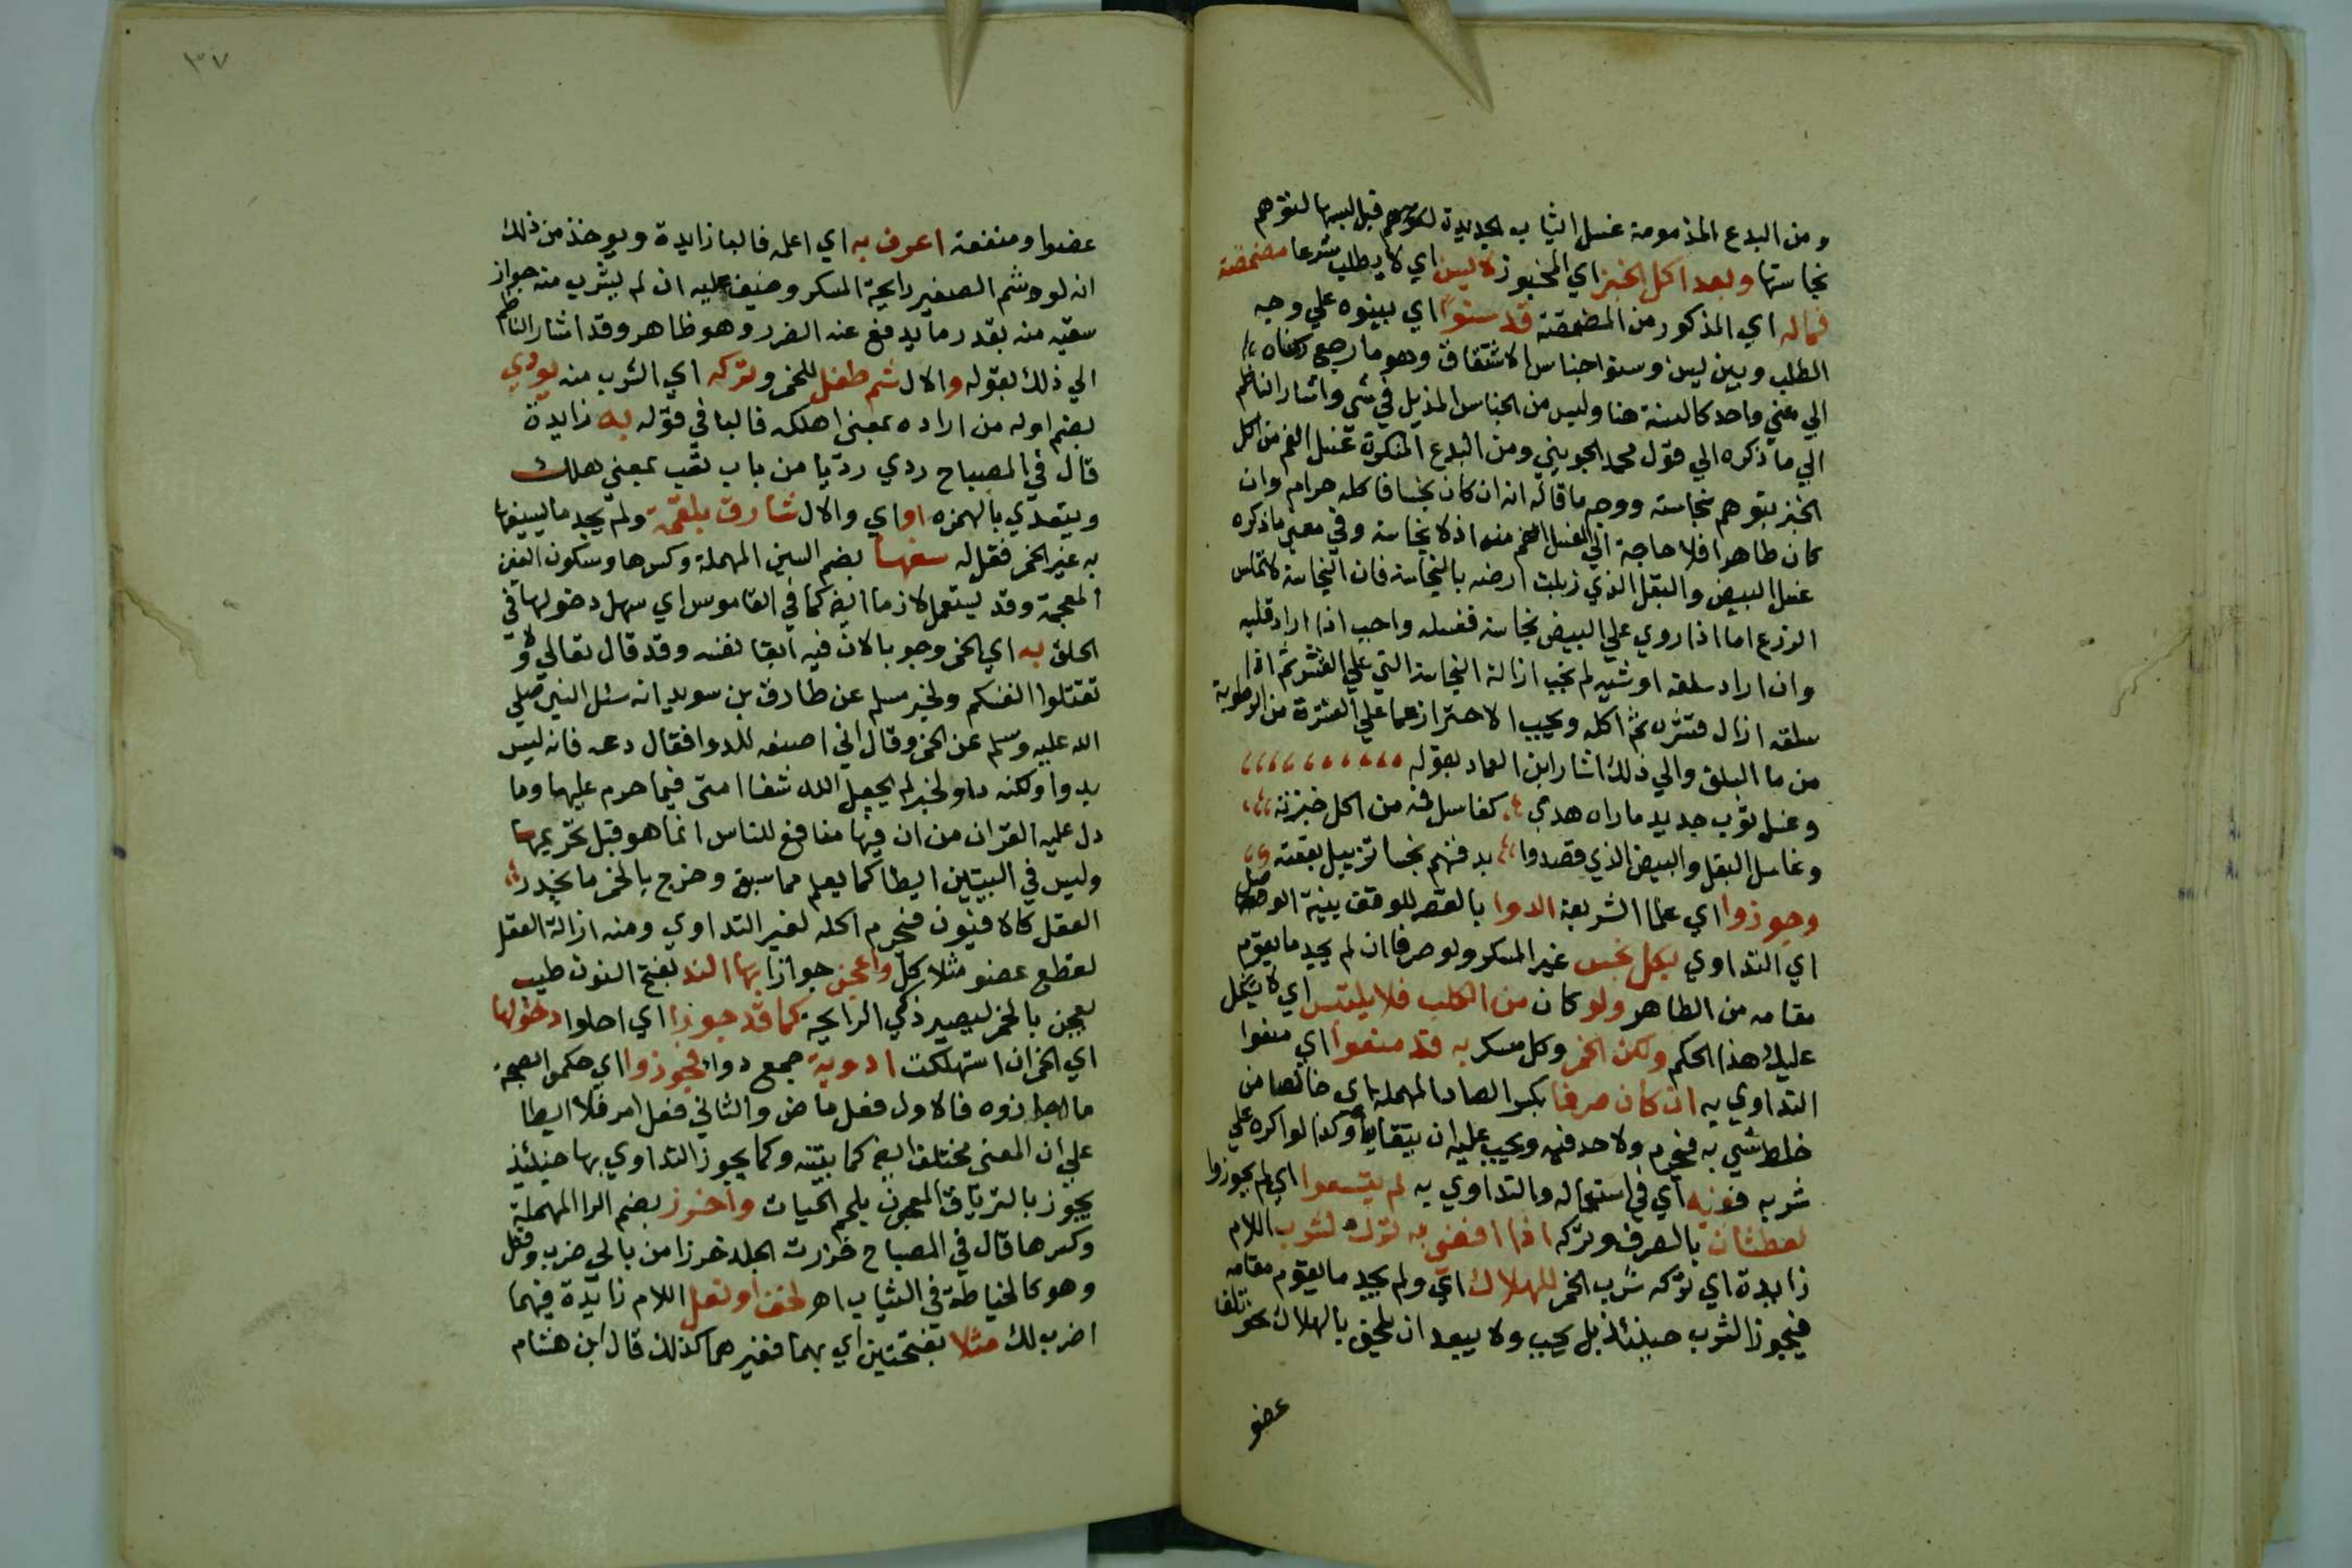 ومن البدع المذمومة غسل الثياب الجديدة قبل لبسها لتوهم
نجاستها وبعد اكل الخبز اي المخبوز لا يسن اي لا يطلب شرعا مضمضة
فما له اي المذكور من المضمضة قد سنوا اي بينوه علي وجه
الطلب وبين يسن وسنوا جناس الاشتقاق وهو ما رجع ركناه
الي معني واحد كالسنة هنا وليس من الجناس المذيل في شي واشار الناظم
الي ما ذكره الي قول محمد الجويني ومن البدع المنكرة غسل الفم من اكل
الخبز بتوهم نجاسته ووجه ما قاله انه ان كان نجسا فاكله حرام وان
كان طاهرا فلا حاجة الي الغسل الفم منه اذ لا نجاسة وفي معني ما ذكره
غسل البيض والبقل الذي زبلت ارضه بالنجاسة فان النجاسة لا تماس
الزرع اما اذا روي علي البيض نجاسة فغسله واجب اذا اراد قليه
وان اراد سلقه او شيه لم تجب ازالة النجاسة التي علي القشر ثم اذا
سلقه ازال قشره ثم اكله ويجب الاحتراز عما علي القشرة من الرطوبة
من ما السلق والي ذلك اشار ابن العماد بقوله
وغسل ثوب جديد ما راه هدي كغاسل فه من اكل خبزته
وغاسل البقل والبيض الذي قصدوا بد فنهم نجسا تزبيل بقعته
وجوزوا اي علما الشريعة الدوا بالقصر للوقف بنية الوصل
اي التداوي بكل نجس غير المسكر ولو صرفا ان لم يجد ما يقوم
مقامه من الطاهر ولو كان من الكلب فلا يلتبس اي لا يشكل
عليك هذا الحكم ولكن الخمر وكل مسكر به قد منعوا اي منعوا
التداوي به ان كان صرفا بكسر الصاد المهملة اي خالصا من
خلط شي به فيحرم ولا حد فيه ويجب عليه ان يتقاياه وكذا لو اكره علي
شربه فوزنه اي في استعماله والتداوي به لم يتسعوا اي لم يجوزوا
لعطشان بالصرف وتركه اذا افضي به ترك لشرب اللام
زايدة اي تركه شرب الخمر للهلاك اي ولم يجد ما يقوم مقامه
فيجوز الشرب حينئذ بل يجب ولا يبعد ان يلحق بالهلاك نحو تلف
عضو
٣٧
عضو او منفعة اعرف به اي اعلمه فالبا زايدة ويوخذ من ذلك
انه لو شم الصغير رايحة المسكر وخيف عليه ان لم يشرب منه جواز
سقيه منه بقدر ما يدفع عنه الضرر وهو ظاهر وقد اشار الناظم
الي ذلك بقوله والال شم طفل للخمر وتركه اي الشرب منه يودي
بضم اوله من اراده بمعني اهلكه فالبا في قوله به زايدة
قال في المصباح ردي رديا من باب تعب بمعني هلك
ويتعدي بالهمزه او اي والال شارق بلقمة ولم يجد ما يسيغها
به غير الخمر فقل له سغها بضم السين المهملة وكسرها وسكون الغين
المعجمة وقد يستعمل لازما ايضا كما في القاموس اي سهل دخولها في
الحلق به اي الخمر وجوبا لان فيه ابقا نفسه وقد قال تعالي ولا
تقتلوا انفسكم ولخبر مسلم عن طارق بن سويد انه سئل النبي صلي
الله عليه وسلم عن الخمر وقال اني اصنعه للدوا فقال دعه فانه ليس
بدوا ولكنه داو لخبر لم يجعل الله شفا امتي فيما حرم عليها وما
دل عليه القران من ان فيها منافع للناس انما هو قبل تحريمها
وليس في البيتين ايطا كما يعلم مما سبق وخرج بالخمر ما يخدر
العقل كالافيون فيحرم اكله لغير التداوي ومنه ازالة العقل
لقطع عضو مثلا كل واعجن جوازا بها الند بفتح النون طيب
يعجن بالخمر ليصير ذكي الرايحة كما قد جوزا اي احلوا دخولها
اي الخمر ان استهلكت ادوية جمع دوا فجوزوا اي حكموا بصحة
ما اجازوه فالاول فعل ماض والثاني فعل امر فلا ايطا
علي ان المعني مختلف ايضا كما بينته وكما يجوز التداوي بها حينئذ
يجوز بالترياق المعجون بلحم الحيات واخرز بضم الرا المهملة
وكسرها قال في المصباح خرزت الجلد خرزا من بابي ضرب وقتل
وهو كالخياطة في الثياب اه لخف او نعل اللام زايدة فيهما
اضرب لك مثلا بفتحتين اي بهما فغيرهما كذلك قال ابن هشام